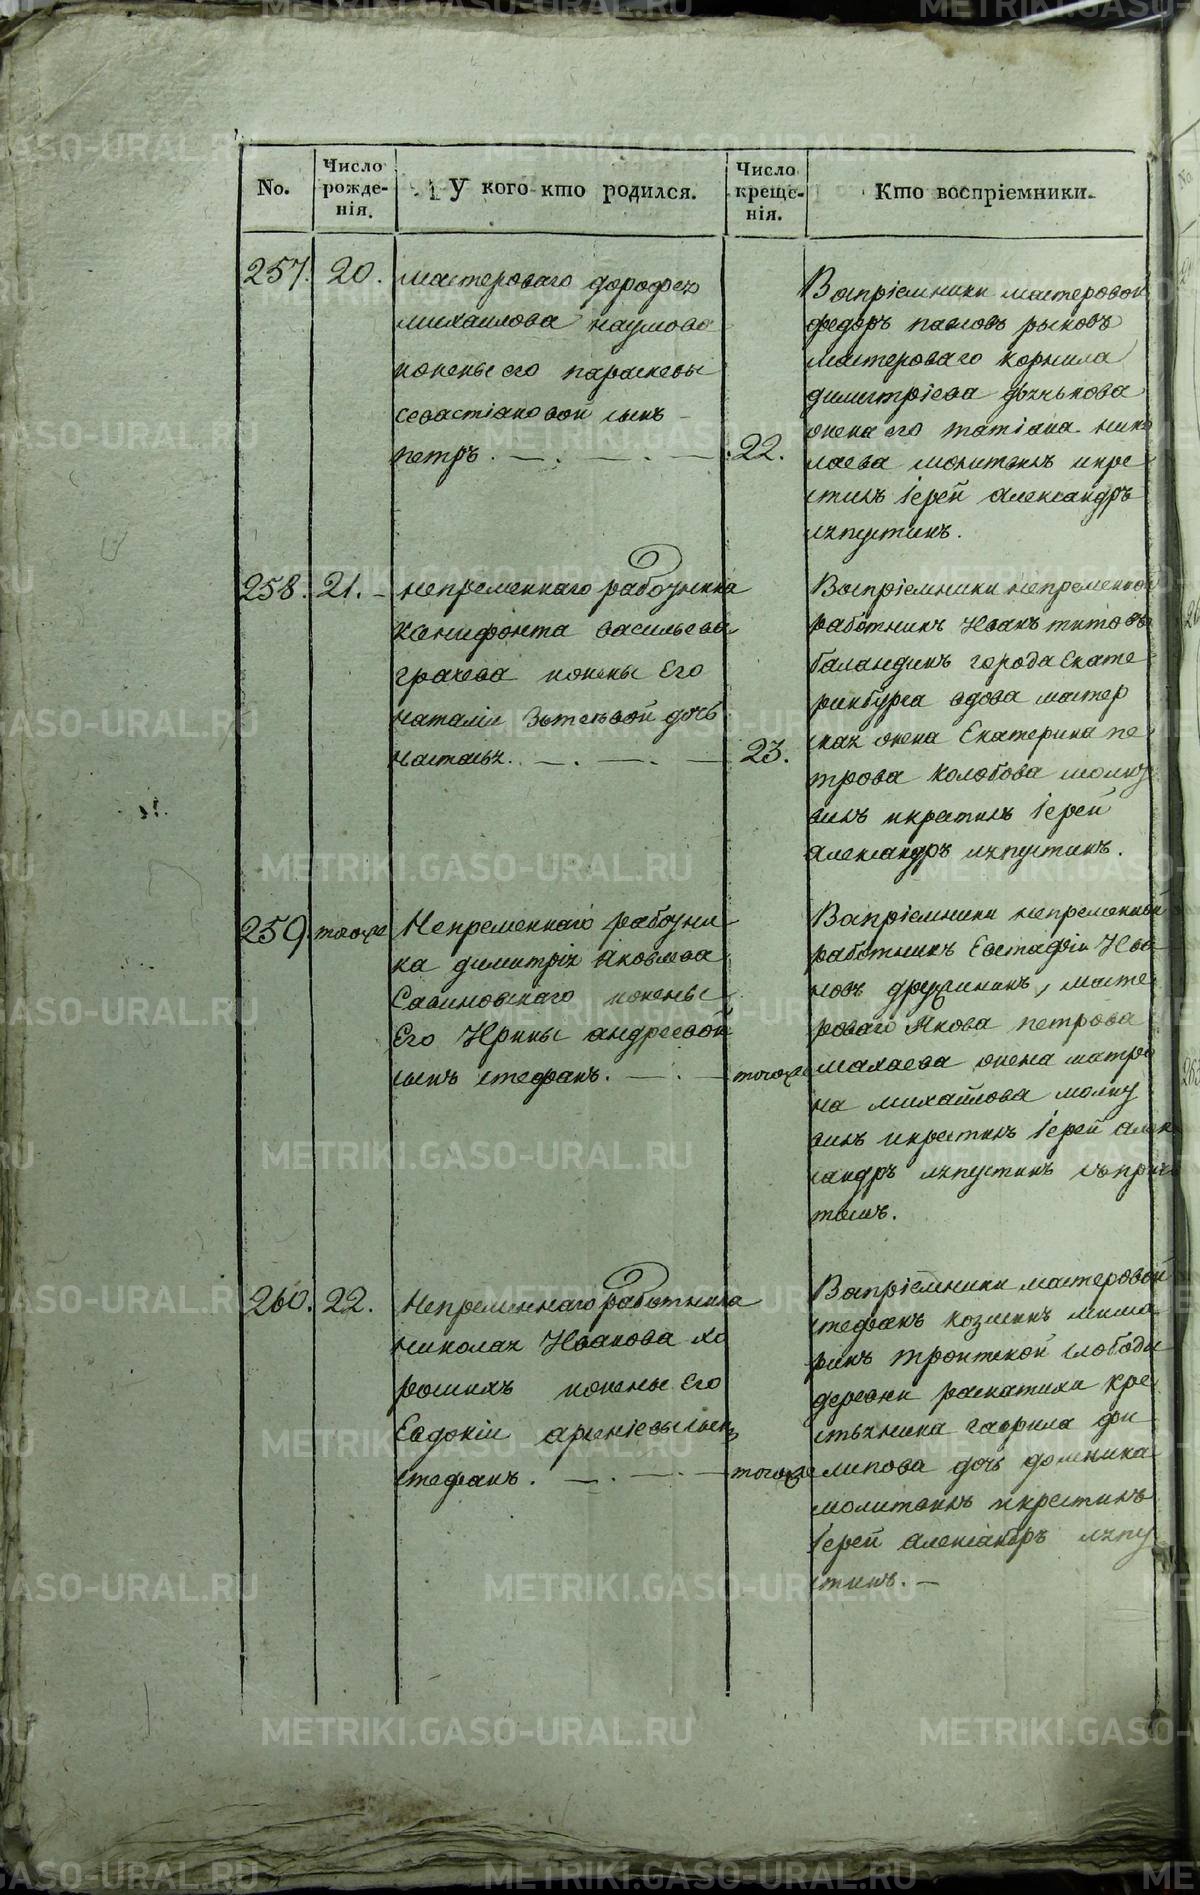 No.
Число рожде-нія.
У кого кто родился.
Число креще-нія.
Кто воспріемники.
257. 20.
мастероваго дорофея
михаилова наумова
иженыего параскевы
севастіановой сынъ
петръ.
22.
Воспріемники мастеровой
федоръ павловъ рыковъ
мастероваго корнила
димитріева
жена его татіана нико
лаева молитвилъ икре
стилъ іерей александръ
ляпустинъ.
258. 21.
непременнаго работника
Ксенифонта васильева
грачева иженыего
наталіи дочь
настасья.
23.
Воспріемники непременной
работникъ Иванъ титовъ
баландинъ города екате
ринбурга вдова мастер
ская жена Екатерина пе
трова колобова молит
вилъ икрестилъ іерей
александръ ляпустинъ.
259. тогоже
Непременнаго работни
ка димитрія Яковлева
Савиновскаго иженыего
Его Ирины андреевой
сынъ стефанъ.
тогоже
Воспріемники непременной
работникъ Евстафіи Ива
новъ дружининъ, масте
роваго Якова петрова
малаева жена матро
на михайлова молит
вилъ икрестилъ іерей алек
сандръ ляпустинъ съприч
томъ.
260. 22.
Непременнаго работника
николая Иванова хо
рошихъ иженыего Его
Евдокіи арсеніевы сынъ
стефанъ.
тогоже
Воспріемники мастеровой
стефанъ козминъ
троитской слободы
деревни раскатихи кре
стьянина гаврила фи
липова дочь домника
молитвилъ икрестилъ
іерей александръ ляпу
стинъ.
METRIKI.GASO-URAL.RU